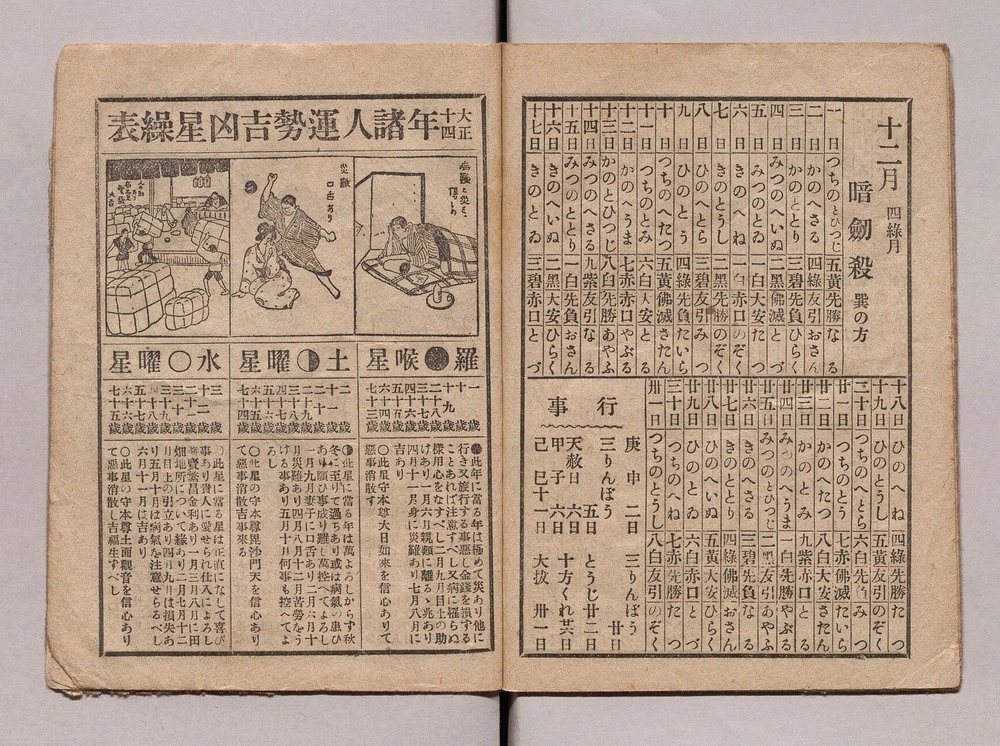 十二月 四綠月
暗劍殺 巽の方
一日 つちのとひつじ 五黄 先勝 なる
二日 かのへさる 四綠 友引 おさん
三日 かのととり 三碧 先負 ひらく
四日 みつのへいぬ 二黑 佛滅 と
五日 みつのとゐ 一白 大安 たつ
六日 きのへね 一白 赤口 のぞく
七日 きのとうし 二黑 先勝 のぞく
八日 ひのへとら 三碧 友引 みつ
九日 ひのとう 四綠 先負 たいら
十日 つちのへたつ 五黄 佛滅 さたん
十一日 つちのとみ 六白 大安 とる
十二日 かのへうま 七赤 赤口 やぶる
十三日 かのとひつじ 八白 先勝 あやふ
十四日 みつのへさる 九紫 友引 なる
十五日 みつのととり 一白 先負 おさん
十六日 きのへいぬ 二黑 大安 ひらく
十七日 きのとゐ 三碧 赤口 とづ
十八日 ひのへね 四綠 先勝 たつ
十九日 ひのとうし 五黄 友引 のぞく
二十日 つちのへとら 六白 先負 みつ
廿一日 つちのとう 七赤 佛滅 たいら
廿二日 かのへたつ 八白 大安 さたん
廿三日 かのとみ 九紫 赤口 とる
廿四日 みつのへうま 一白 先勝 やぶる
廿五日 みつのとひつじ 二黑 友引 あやふ
廿六日 きのへさる 三碧 先負 なる
廿七日 きのととり 四綠 佛滅 おさん
廿八日 ひのへいぬ 五黄 大安 ひらく
廿九日 ひのとゐ 六白 赤口 とづ
三十日 つちのへね 七赤 先勝 たつ
卅一日 つちのとうし 八白 友引 のぞく
行事
庚申 二日 三りんぼう 廿日
三りんぼう 五日 とうじ廿二日
天赦日 六日
甲子 六日 十方くれ廿六日
己巳十一日 大拔 卅一日
大正十四年諸人運勢吉凶星繰表
災難
口舌あり
羅●喉星
一歳
十歳
十九歳
二十八歳
三十七歳
四十六歳
五十五歳
六十四歳
七十三歳
●此年に當る年は極めて災あり他に
行き又旅行する事惡し金錢を損する
ことあれば注意すべし又病に罹らぬ
樣用心をなすべし二月九月目上の助
けあり一月六月親類に離るゝ兆あり
四月十一月身に災難あり七月八月に
吉あり
〇此星守本尊大日如來を信心ありて
惡事消散す
土◑曜星
二歳
十一歳
二十歳
二十九歳
三十八歳
四十七歳
五十六歳
六十五歳
七十四歳
◑此星に當る年は萬よろしからず秋
冬に至りて過ちあり或は病氣の患ひ
あり願ひ事成り難し萬控へてよろし
一月九月妻子に口舌あり二月六月十
一月災難あり四月八月十二月苦勞をう
ける事あり五月十月何事も控へてよ
ろし
〇此星の守本尊毘沙門天を信心あり
て惡事消散吉事來る
水〇曜星
三歳
十二歳
二十一歳
三十歳
三十九歳
四十八歳
五十七歳
六十六歳
七十五歳
〇此星に當る星は正直になして喜び
事あり貴人に愛せられ仕人によろし
賣買繁昌金利あり一月三月八月に田
畑地所について緣あり二月七月十二
月目上の引立あり四月九月は損失あ
り五月十月は病氣を注意せらるべし
六月十一月は吉あり
〇此星の守本尊十一面觀音を信心あり
て惡事消散し吉福生ずべし